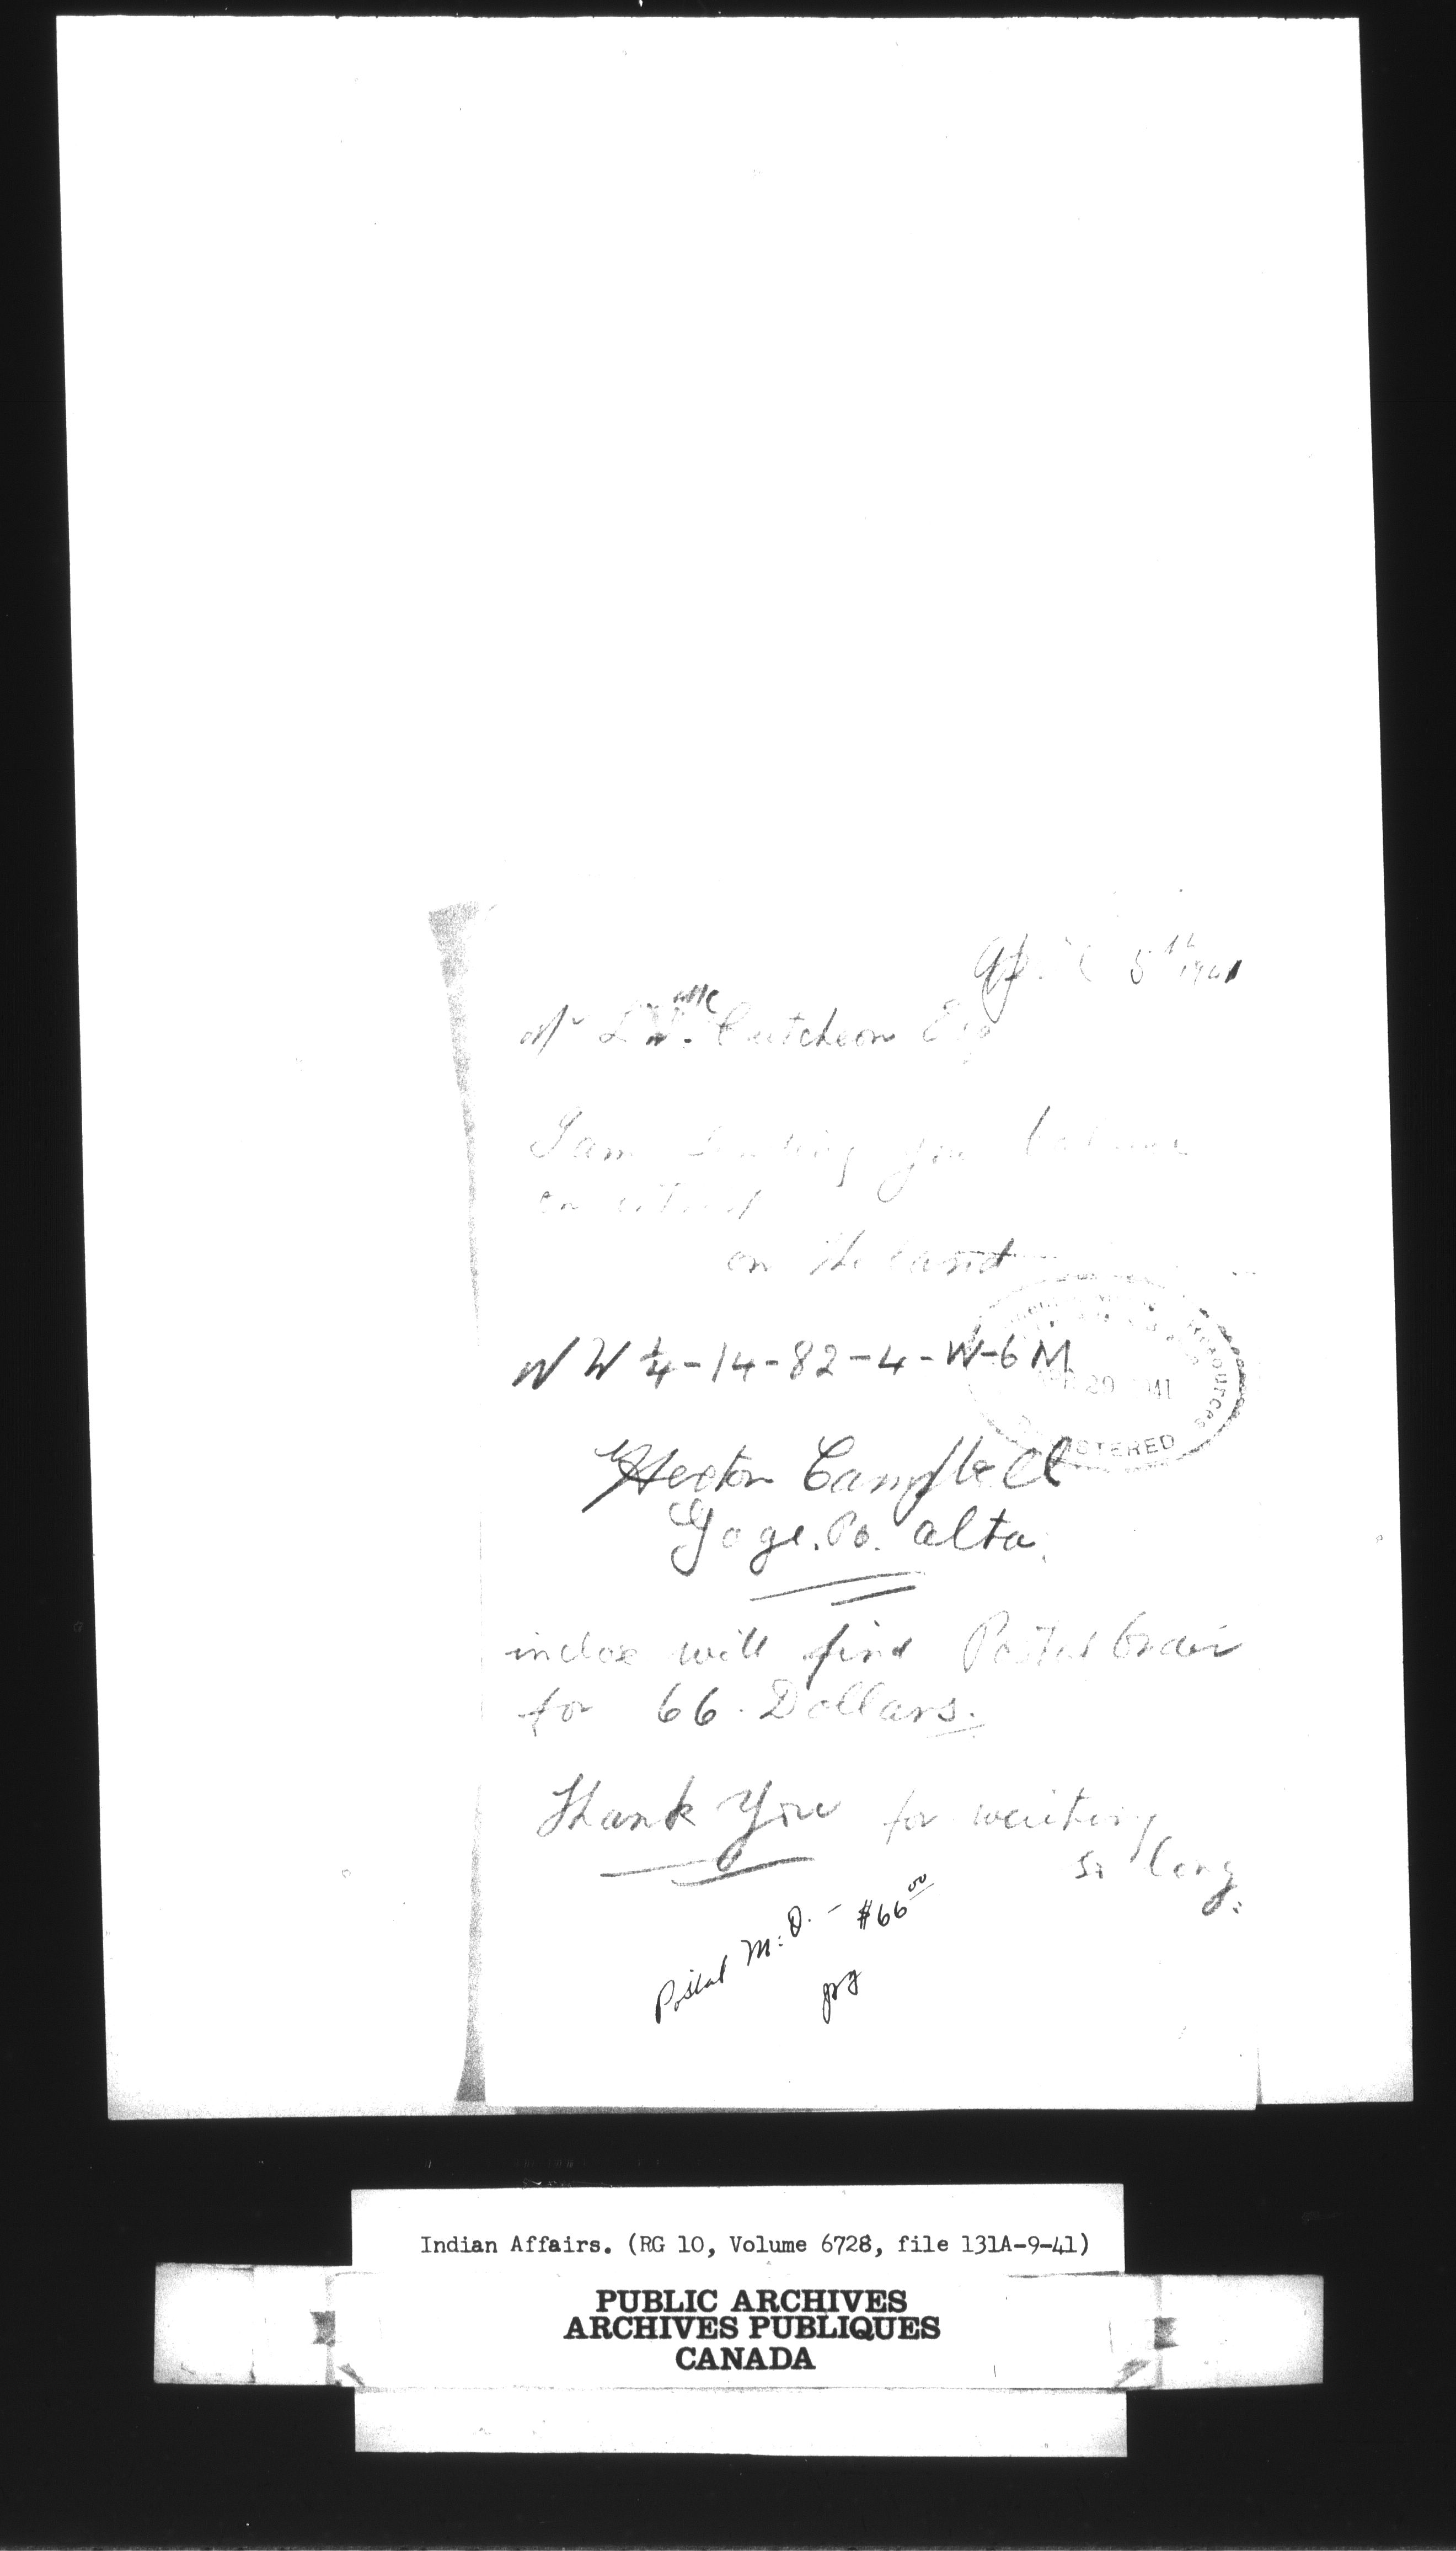 April 5th 1941
Mr L. W. McCutcheon Esq
I am sending you balance
on
on the land
NW ¼-14-82-4-W-6 M
APR 29 1941
REGISTERED
Hector Campbell
Gage. Po. alta.
inclose will find Postal Order
for 66. Dollars.
Thank You for waiting
so long.
Postal M.O. - $66.00
Indian Affairs. (RG 10, Volume 6728, file 131A-9-41)
PUBLIC ARCHIVES
ARCHIVES PUBLIQUES
CANADA